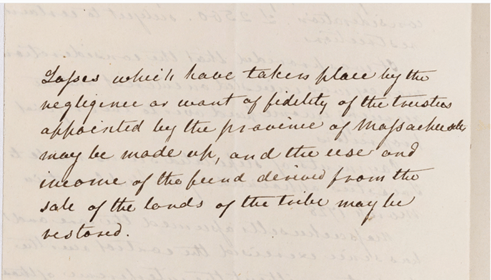 Losses which have taken place by the
negligence or want of fidelity of the trustees
appointed by the province of Massachusetts
may be made up, and the use and
income of the fund derived from the
sale of the lands of the tribe may be
restored.